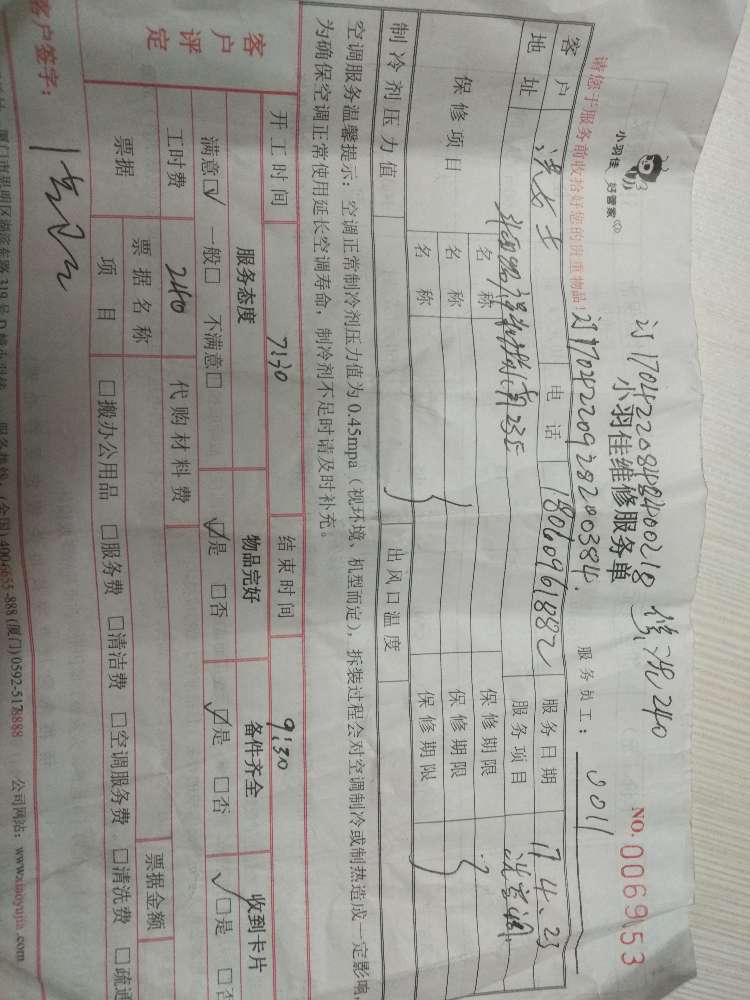 小羽佳 好管家
订170422084840021８
小羽佳维修服务单
NO.0069153
请您于服务前收拾好您的贵重物品！
订170422092820038４.
服务员工：
2011
客户
洗女士
电话
18060961882
服务日期
17 4.23
地址
服务项目
洗空调
保修项目
名称
保修期限
名称
保修期限
名称
保修期限
制冷剂压力值
出风口温度
空调服务温馨提示：空调正常制冷剂压力值为0.45mpa（视环境、机型而定），拆装过程会对空调制冷或制热造成一定影响，
为确保空调正常使用延长空调寿命，制冷剂不足时请及时补充。
开工时间
7:30
结束时间
9:30
客户评定
服务态度
物品完好
备件齐全
收到卡片
满意☑ 一般□ 不满意□
☑是 □否
☑是 □否
☑是
工时费
240
代购材料费
票据
票据名称
票据金额
项目
□搬办公用品 □服务费 □清洁费 □空调服务费 □清洗费 □疏通
客户签字：
厦门市思明区湖滨东路319号D
(全国)4006655-888 (厦门)0592-5178888
公司网站：www.xiaoyujia.com